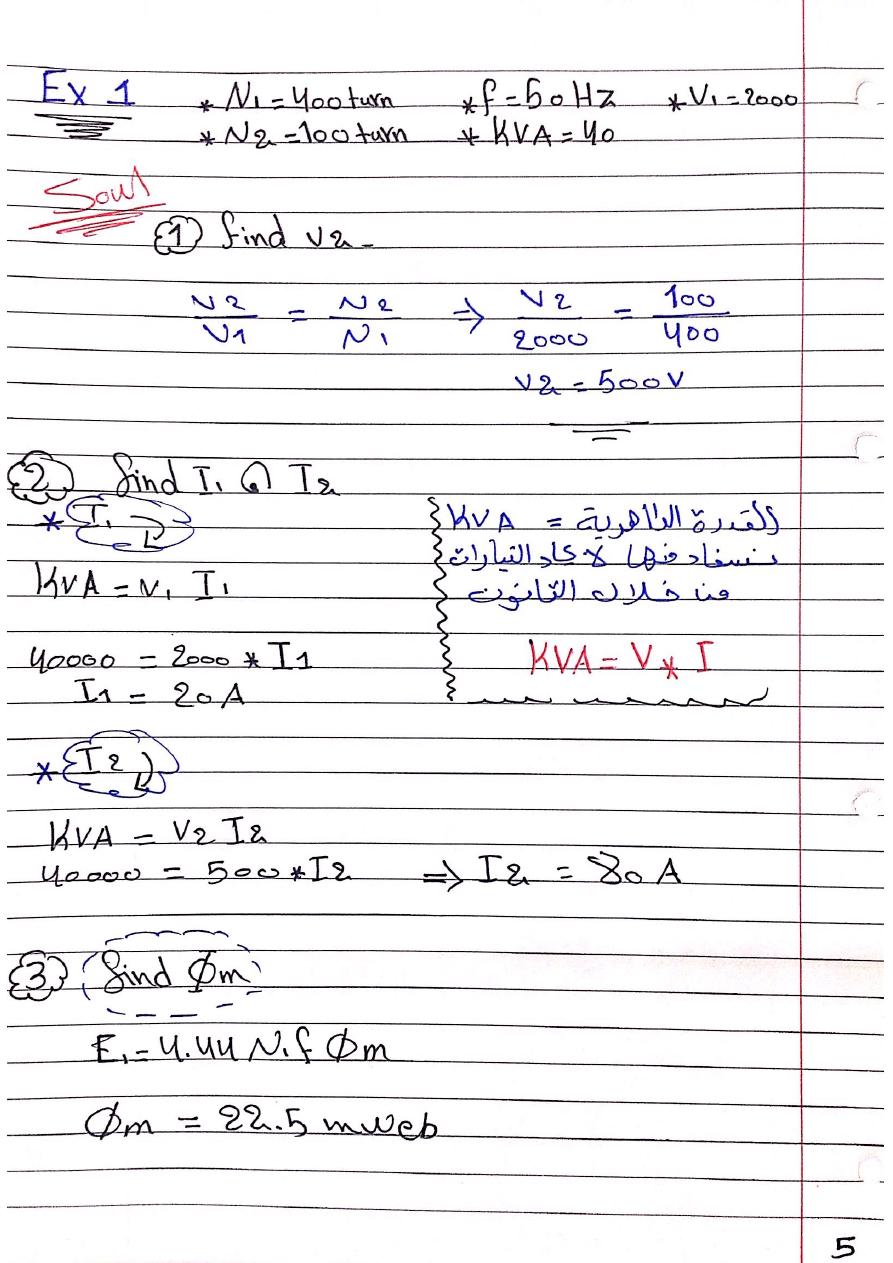 Ex 1 * N1 = 400 turn * f = 50 Hz * V1 = 2000
* N2 = 100 turn * KVA = 40
Soul
① find V2 -
V2 / V1 = N2 / N1 ⇒ V2 / 2000 = 100 / 400
V2 = 500 V
② find I1 و I2
* I1
KVA = V1 I1
40000 = 2000 * I1
I1 = 20 A
KVA = القدرة الظاهرية
نستفاد منها لايجاد التيارات
من خلال القانون
KVA = V * I
* I2
KVA = V2 I2
40000 = 500 * I2 ⇒ I2 = 80 A
③ find Øm
E1 = 4.44 N1 f Øm
Øm = 22.5 mweb
5